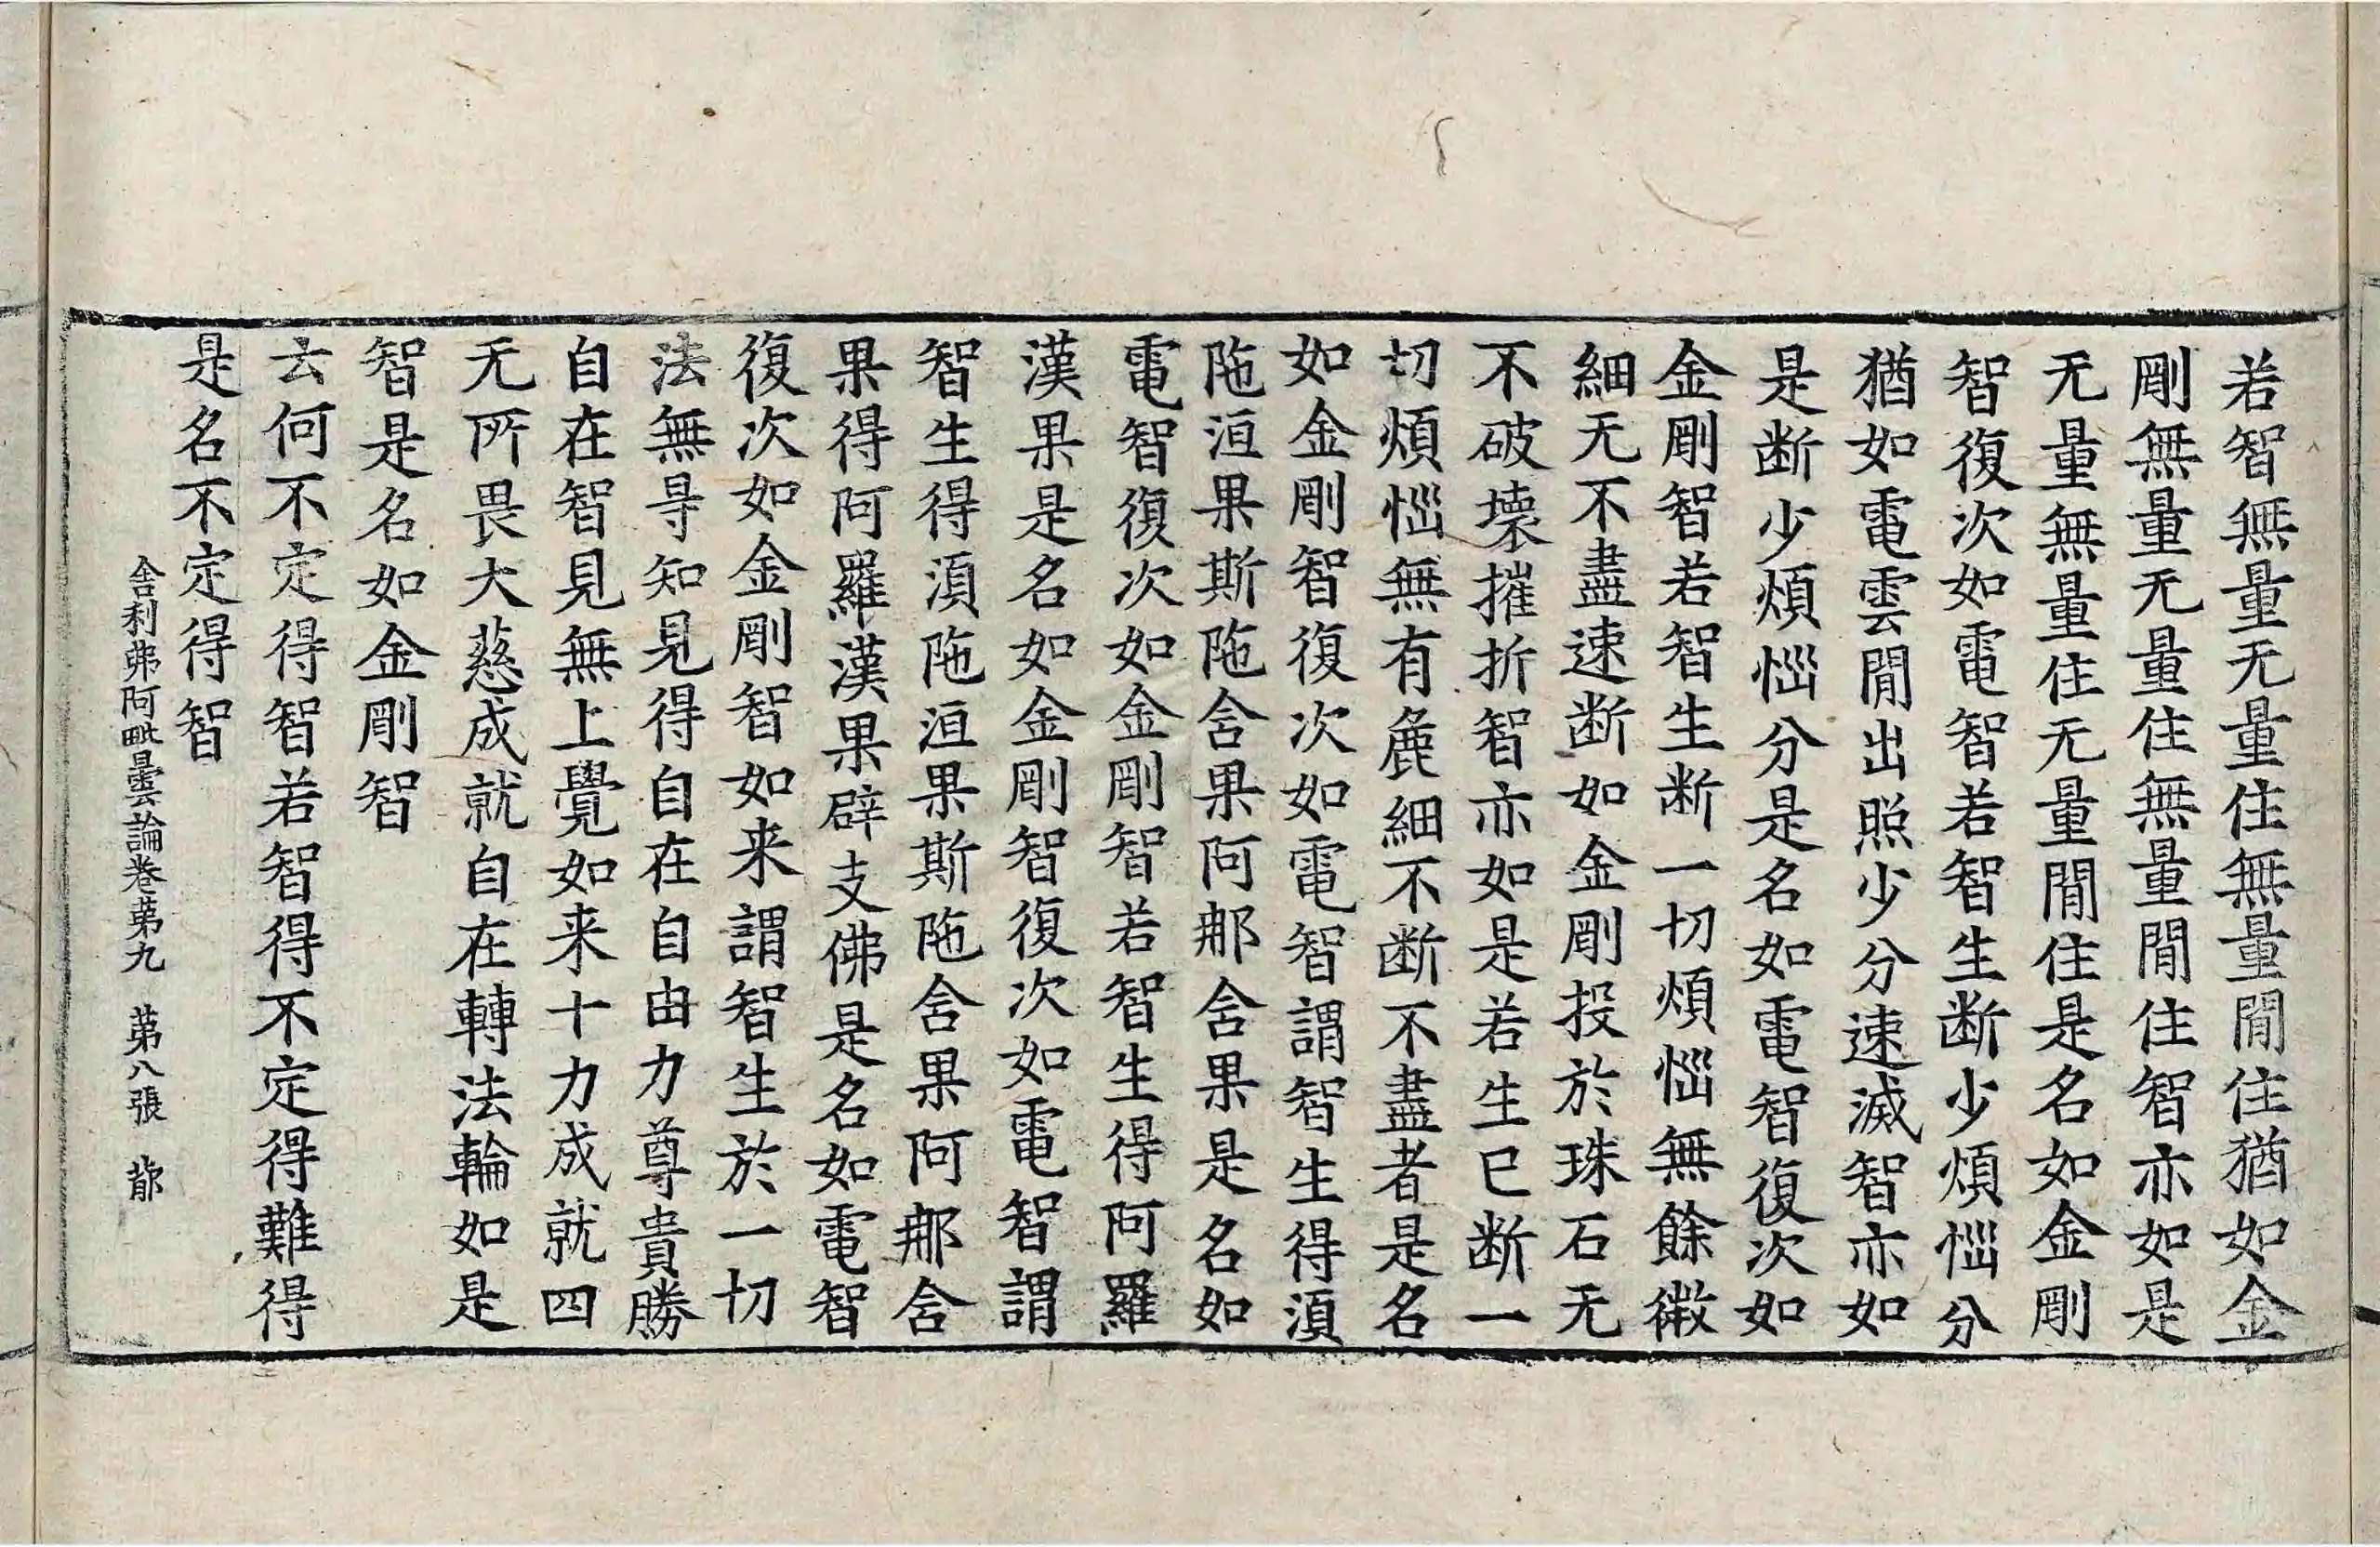 若智無量无量住無量間住猶如金
剛無量无量住無量間住智亦如是
无量無量住无量間住是名如金剛
智復次如電智若智生断少煩惱分
猶如電雲間出照少分速滅智亦如
是断少煩惱分是名如電智復次如
金剛智若智生断一切煩惱無餘微
細无不盡速断如金剛投於珠石无
不破壞摧折智亦如是若生已断一
切煩惱無有麁細不断不盡者是名
如金剛智復次如電智謂智生得湏
陁洹果斯陁舍果阿𨚗舍果是名如
電智復次如金剛智若智生得阿羅
漢果是名如金剛智復次如電智謂
智生得湏陁洹果斯陁舍果阿𨚗舍
果得阿羅漢果辟支佛是名如電智
復次如金剛智如来謂智生於一切
法無㝵知見得自在自由力尊貴勝
自在智見無上覺如来十力成就四
无所畏大慈成就自在轉法輪如是
智是名如金剛智
云何不定得智若智得不定得難得
是名不定得智
舍利弗阿毗曇論卷第九 第八張